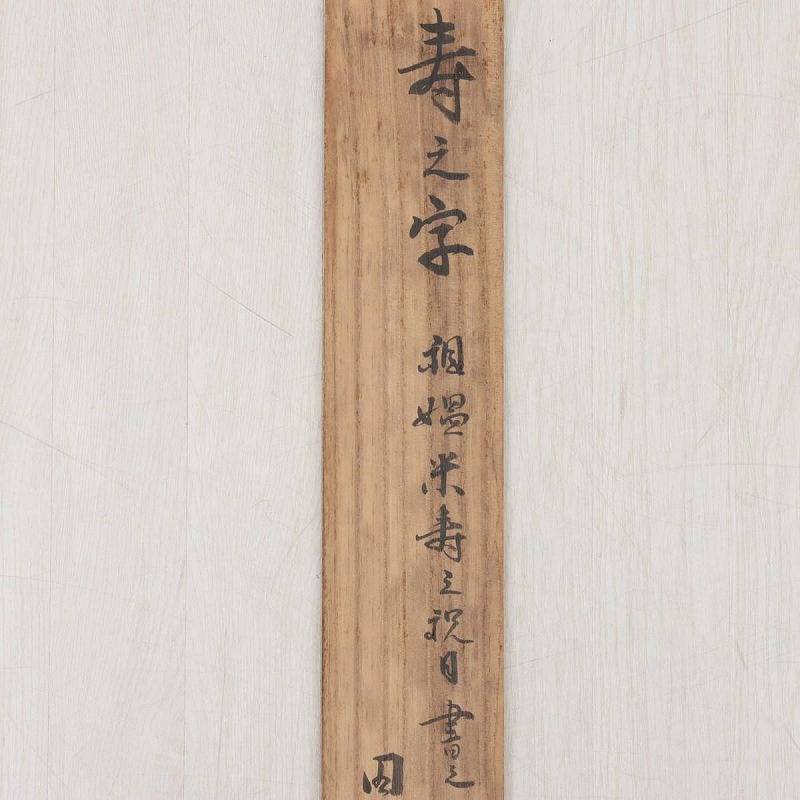 寿之字　祖媼米寿之祝日書之